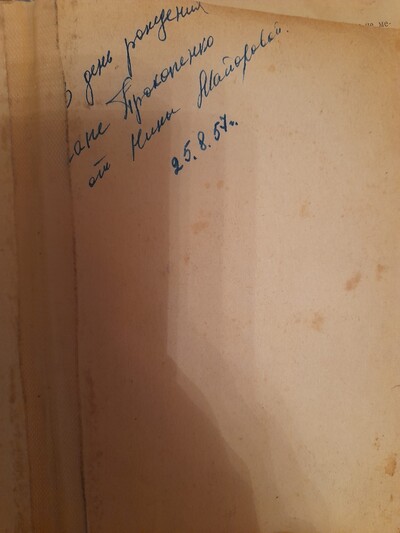 день рождения
Прокопенко
от Нины Майоровой.
25.8.57г.